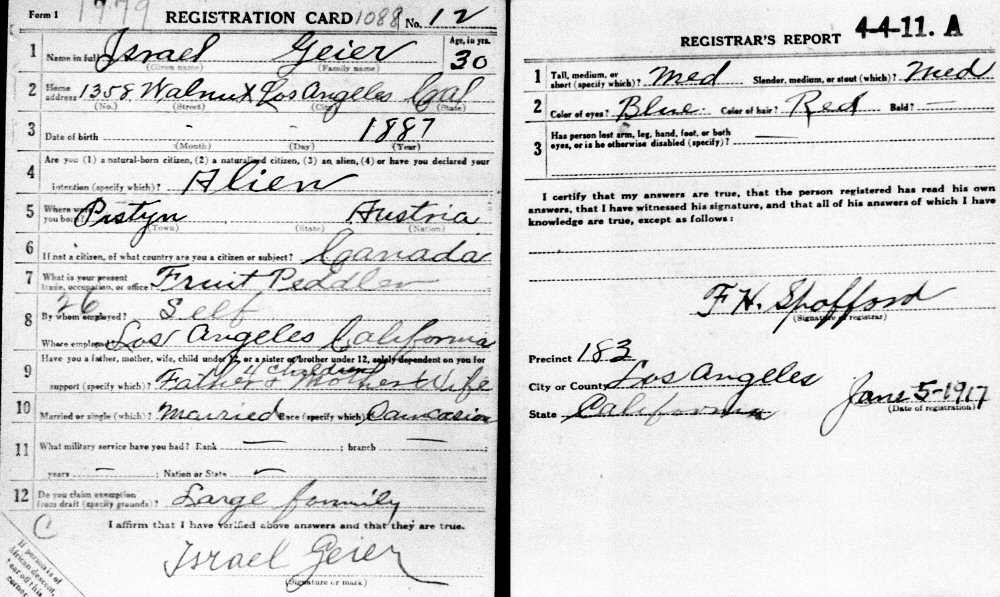 Form 1 1779 REGISTRATION CARD 1088 No. 12
1 Name in full Israel Geier Age, in yrs. 30
(Given name) (Family name)
2 Home address 1358 Walnut Los Angeles Cal
(No.) (Street) (City) (State)
3 Date of birth - - 1887
(Month) (Day) (Year)
4 Are you (1) a natural-born citizen, (2) a naturalized citizen, (3) an alien, (4) or have you declared your
intention (specify which)? Alien
5 Where were you born? Pistyn Austria
(Town) (State) (Nation)
6 If not a citizen, of what country are you a citizen or subject? Canada
7 What is your present trade, occupation, or office? Fruit Peddler
26
8 By whom employed? Self
Where employed? Los Angeles California
9 Have you a father, mother, wife, child under 12, or a sister or brother under 12, solely dependent on you for
4 children
support (specify which)? Father & Mother & Wife
10 Married or single (which)? Married Race (specify which)? Caucasian
11 What military service have you had? Rank — ; branch —
years — ; Nation or State —
12 Do you claim exemption from draft (specify grounds)? Large family
C
I affirm that I have verified above answers and that they are true.
Israel Geier
(Signature or mark)
If person is of
African descent,
tear off this
corner
REGISTRAR'S REPORT 4-4-11. A
1 Tall, medium, or short (specify which)? Med Slender, medium, or stout (which)? Med
2 Color of eyes? Blue Color of hair? Red Bald? —
3 Has person lost arm, leg, hand, foot, or both
eyes, or is he otherwise disabled (specify)? —
I certify that my answers are true, that the person registered has read his own
answers, that I have witnessed his signature, and that all of his answers of which I have
knowledge are true, except as follows:
F. H. Spofford
(Signature of registrar)
Precinct 183
City or County Los Angeles
State California June 5-1917
(Date of registration)